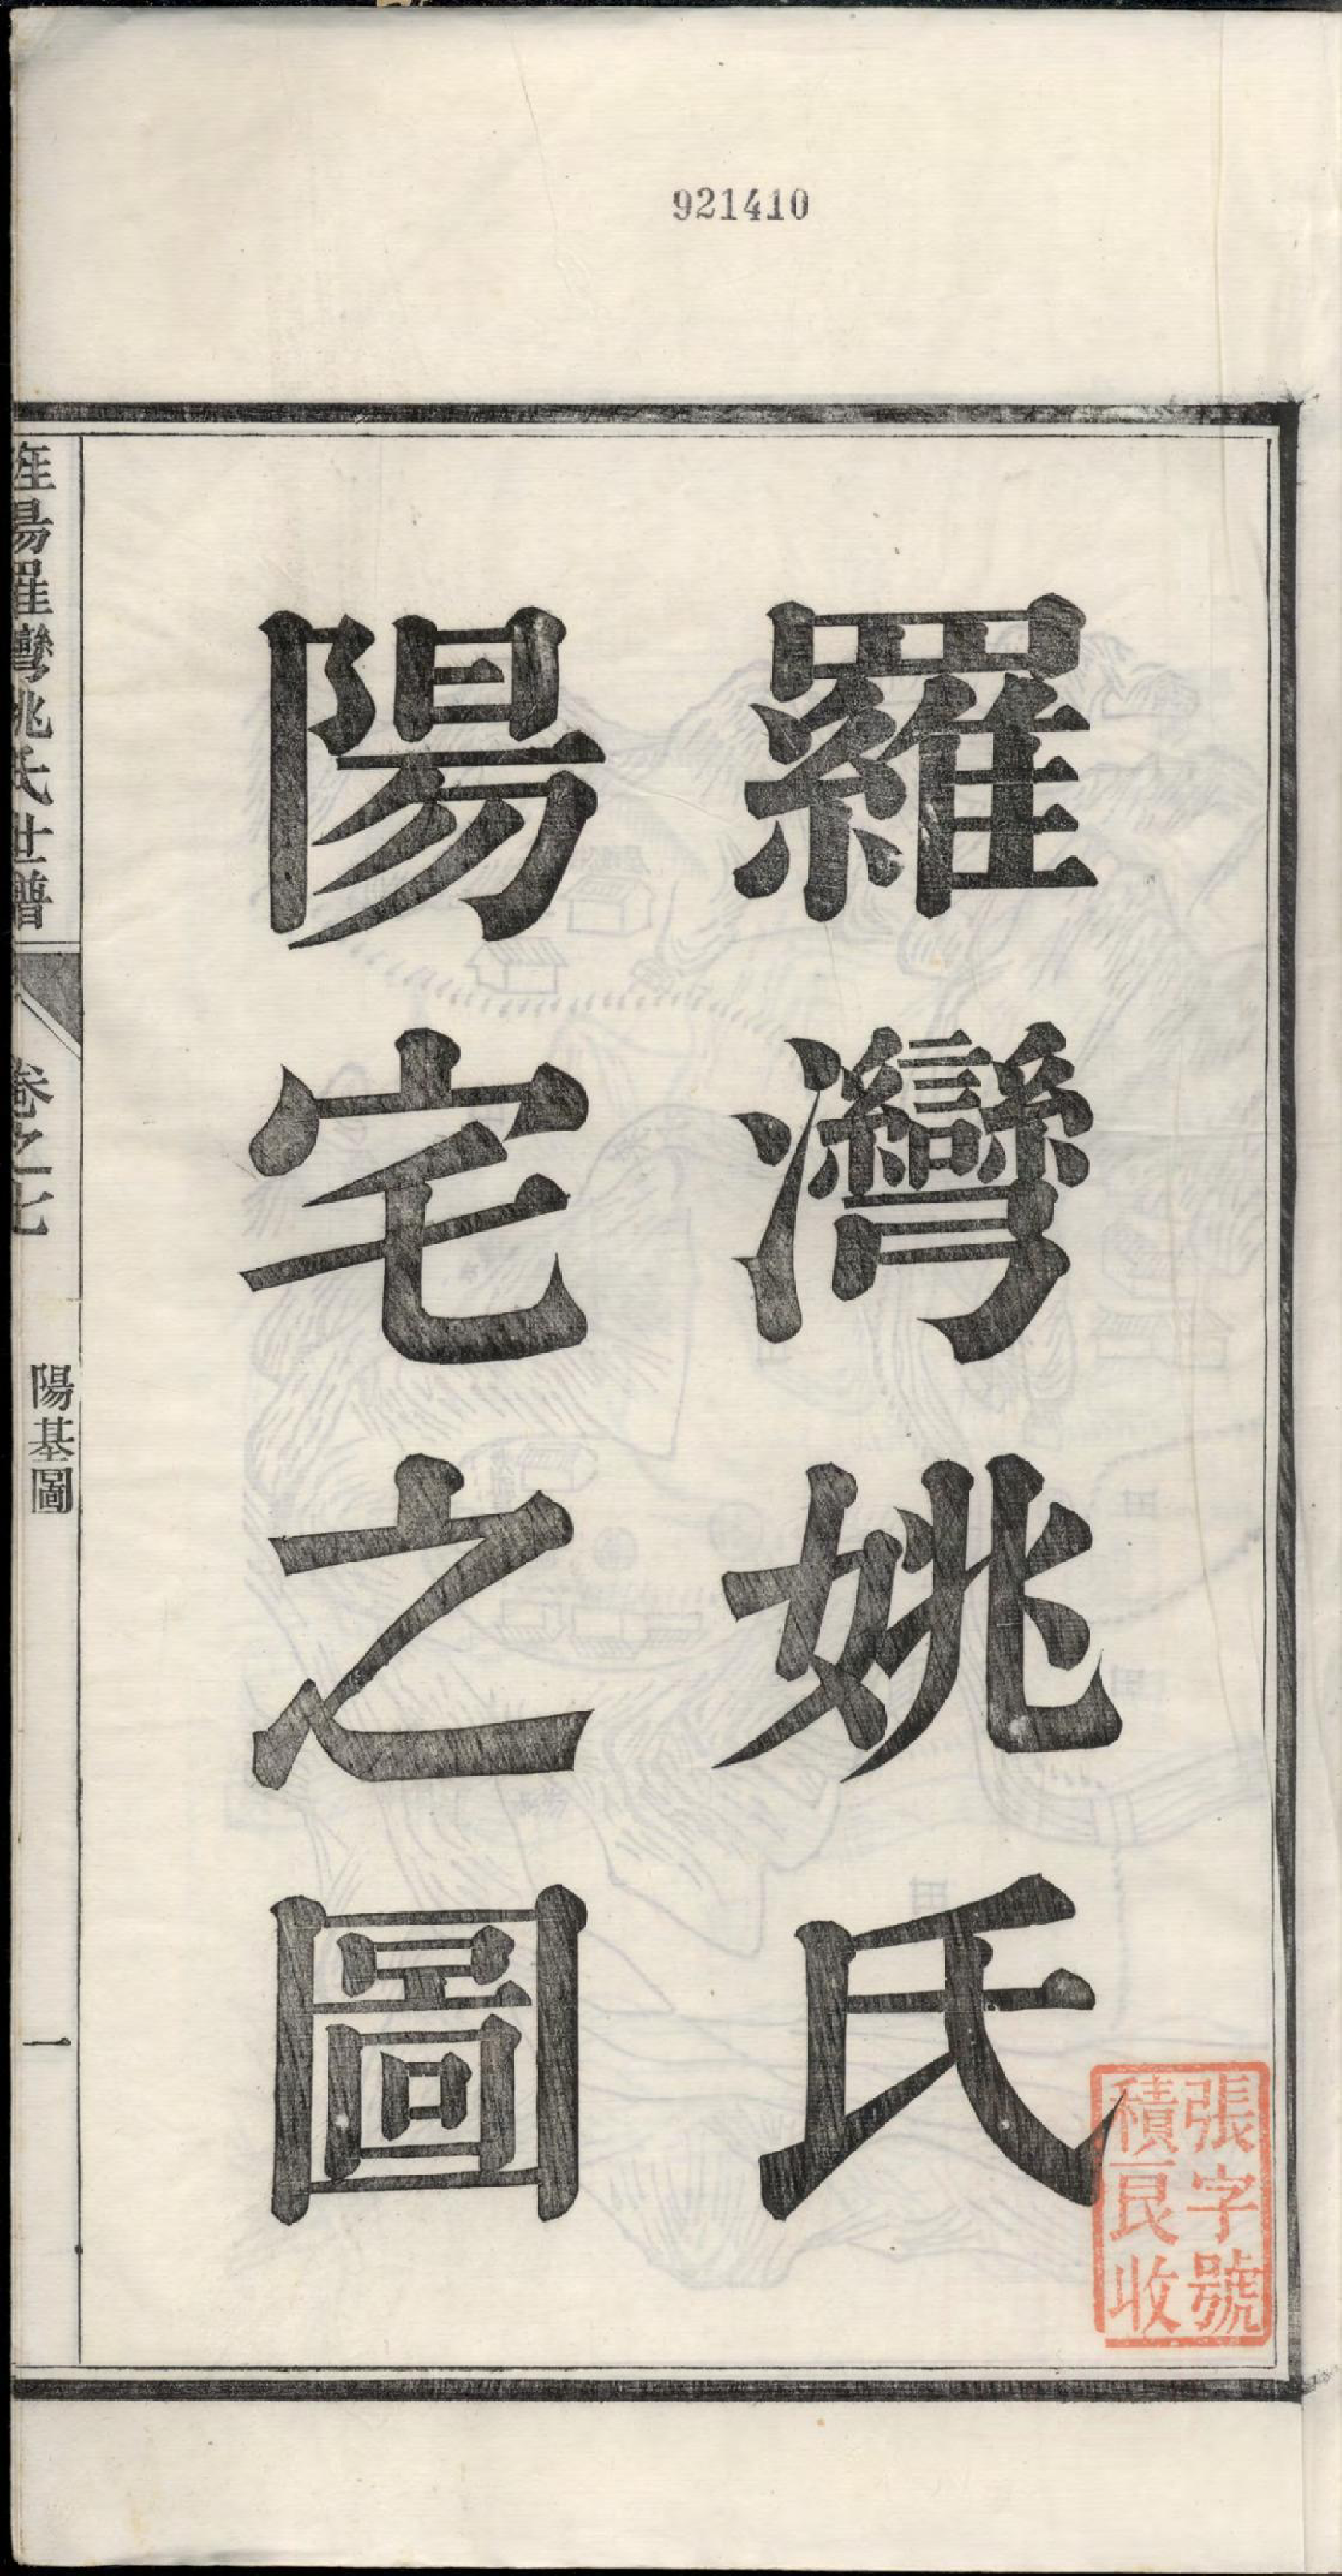 921410
羅灣姚氏
陽宅之圖
張字號
積良收
旌陽羅灣姚氏世譜
卷之七
陽基圖
一